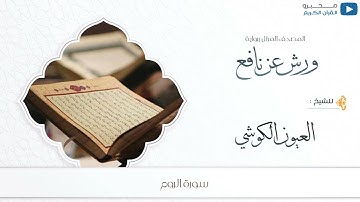 محبرو
القرآن الكريم
المصحف المرتل برواية
ورش عن نافع
للشيخ :
العيون الكوشي
سورة الروم